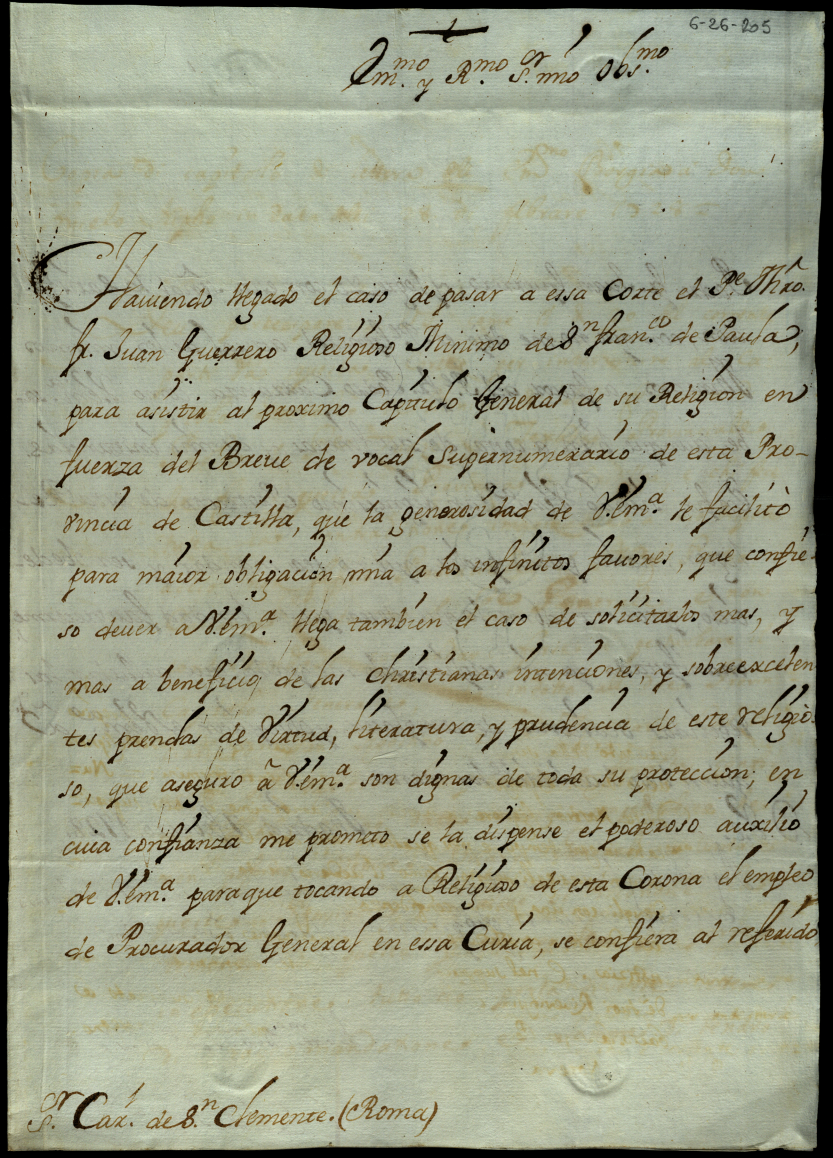 6-26-205
Em.mo y R.mo S.r mio Obs.mo
Haviendo llegado el caso de pasar a essa Corte el P.e Mrõ.
fr. Juan Guerrero Religioso Minimo de S.n fran.co de Paula,
para asistir al proximo Capitulo General de su Religion en
fuerza del Breve de vocal supernumerario de esta Pro-
vincia de Castilla, que la generosidad de V.Em.a le facilitò
para maior obligacion mia a los infinitos favores, que confie-
so dever a V.Em.a llega tambien el caso de solicitarlos mas, y
mas a beneficio de las christianas intenciones, y sobreexcelen
tes prendas de virtud, literatura, y prudencia de este religio-
so, que aseguro â V.Em.a son dignas de toda su proteccion; en
cuia confianza me prometo se la dispense el poderoso auxilio
de V.Em.a para que tocando a Religioso de esta Corona el empleo
de Procurador General en essa Curia, se confiera al referido
S.r Car.l de S.n Clemente. (Roma)